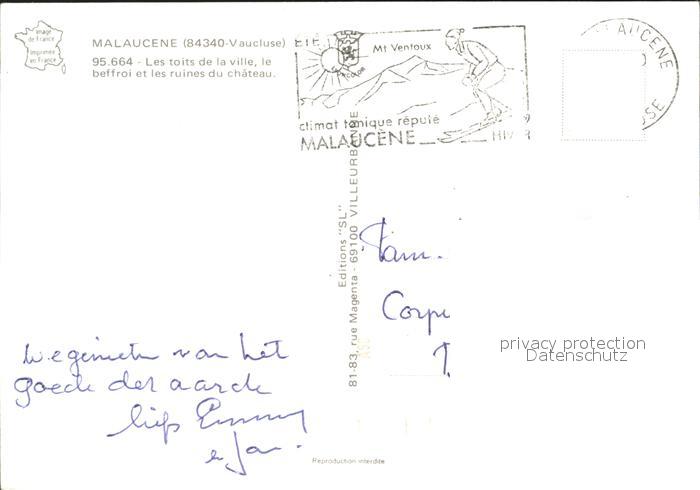 Image
de France
Imprimée
en France
MALAUCENE (84340-Vaucluse)
95.664 - Les toits de la ville, le
beffroi et les ruines du château.
ETE
Mt Ventoux
climat tonique réputé
MALAUCÈNE
HIVER
MALAUCENE
Editions "SL"
81-83, rue Magenta - 69100 VILLEURBANNE
Fam.
Corpe
privacy protection
Datenschutz
We genieten van het
goede der aarde
liefs Emmy
en Jan.
Reproduction interdite